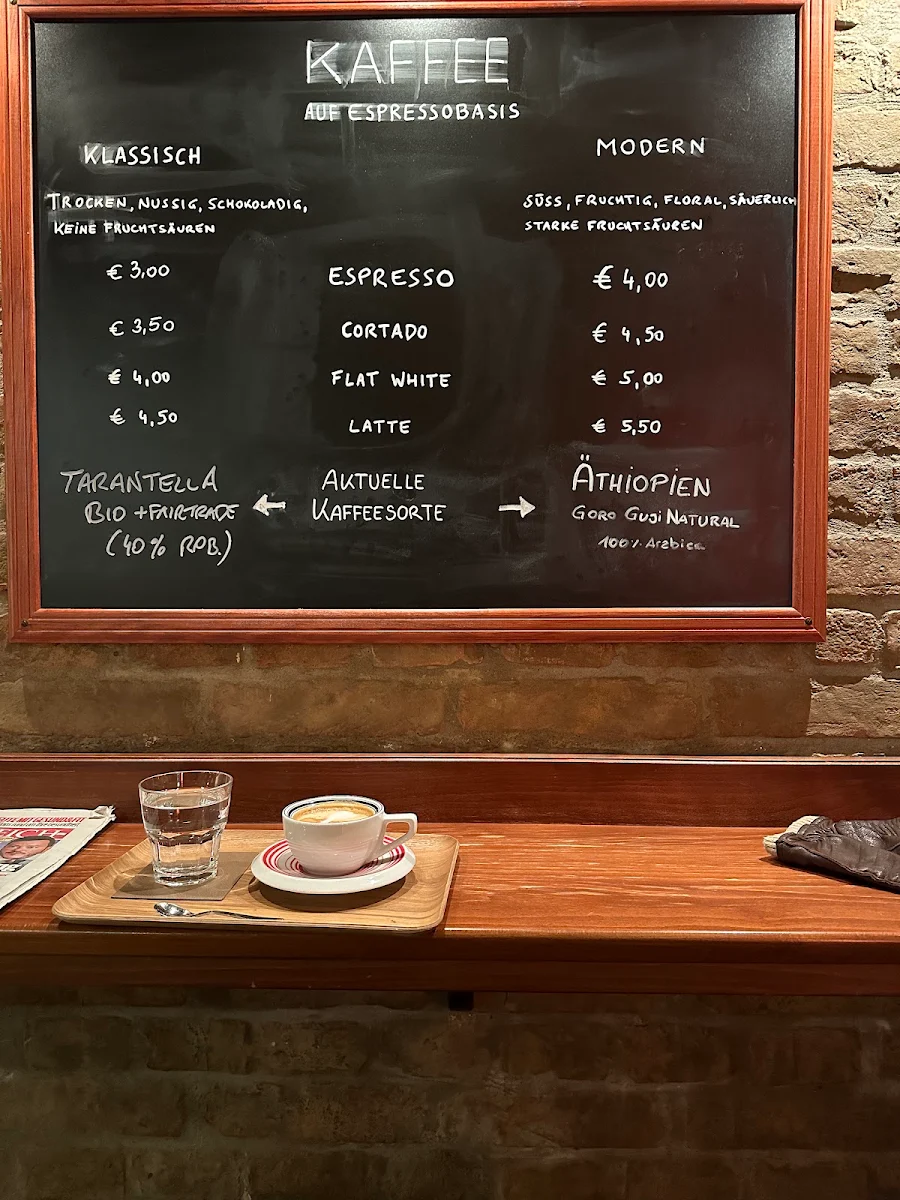 KAFFEE
AUF ESPRESSOBASIS
KLASSISCH
MODERN
TROCKEN, NUSSIG, SCHOKOLADIG,
KEINE FRUCHTSÄUREN
SÜSS, FRUCHTIG, FLORAL, SÄUERLICH
STARKE FRUCHTSÄUREN
€ 3,00 ESPRESSO € 4,00
€ 3,50 CORTADO € 4,50
€ 4,00 FLAT WHITE € 5,00
€ 4,50 LATTE € 5,50
TARANTELLA
BIO + FAIRTRADE
(40% ROB.)
← AKTUELLE
KAFFEESORTE →
ÄTHIOPIEN
GORO GUJI NATURAL
100% Arabica